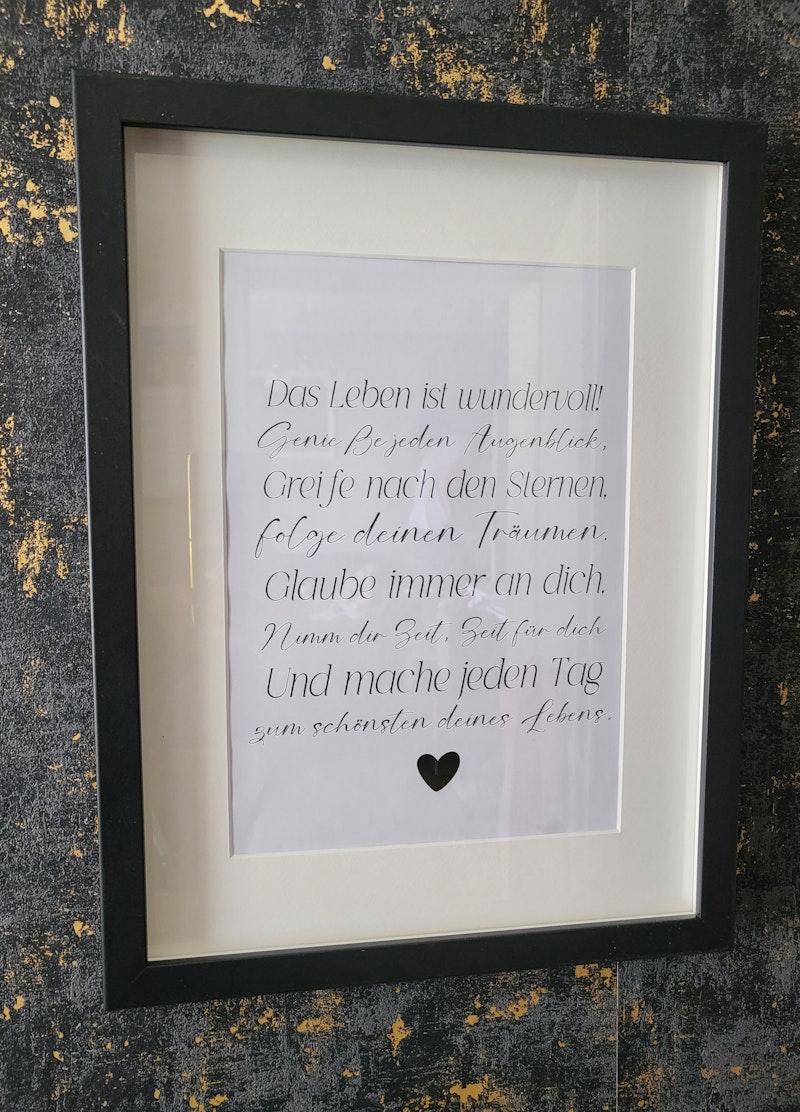 Das Leben ist wundervoll!
Genieße jeden Augenblick,
Greife nach den Sternen,
folge deinen Träumen.
Glaube immer an dich,
Nimm dir Zeit, Zeit für dich
Und mache jeden Tag
zum schönsten deines Lebens.